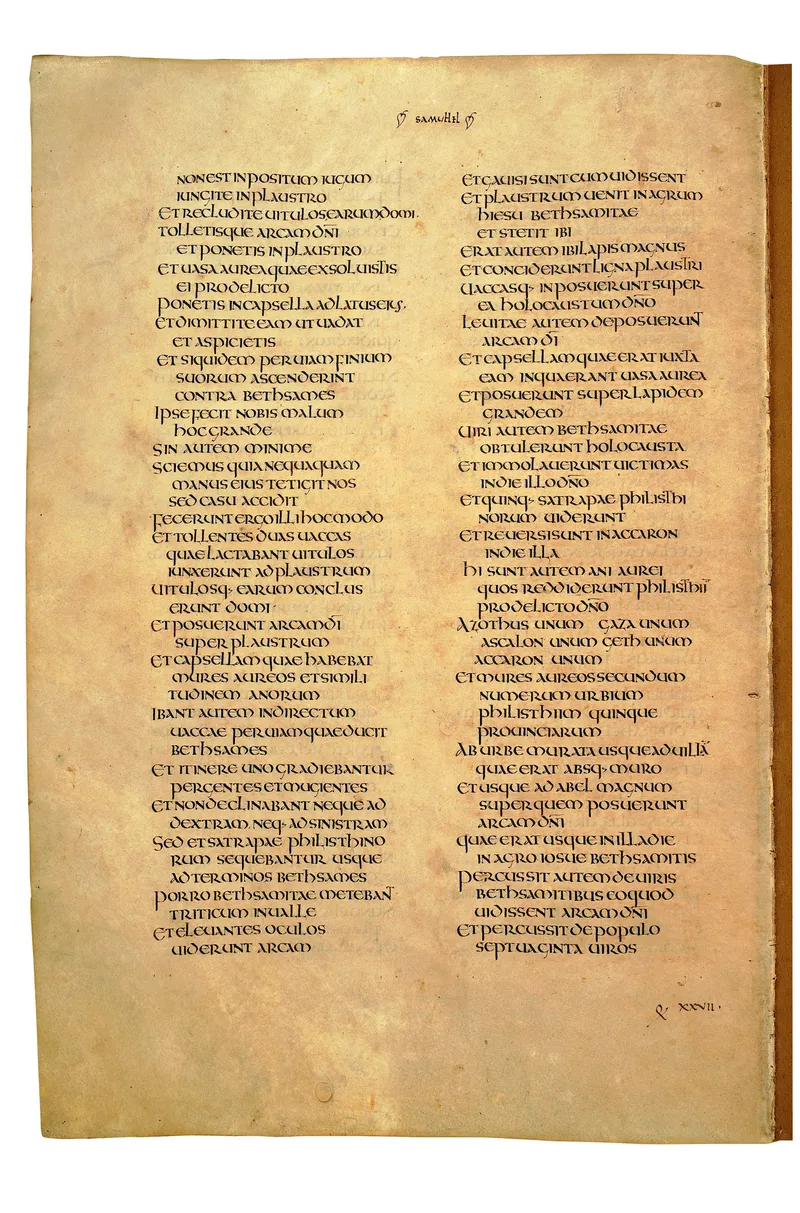 SAMUHEL
NONESTINPOSITUM IUGUM
IUNGITE INPLAUSTRO
ETRECLUDITE UITULOSEARUMDOMI.
TOLLETISQUE ARCAM DN̄I
ETPONETIS INPLAUSTRO
ETUASA AUREAQUAEEXSOLUISTIS
EI PRODELICTO
PONETIS INCAPSELLAADLATUSEIUS.
ETDIMITTITE EAM UTUADAT
ET ASPICIETIS
ET SIQUIDEM PERUIAM FINIUM
SUORUM ASCENDERINT
CONTRA BETHSAMES
IPSE FECIT NOBIS MALUM
HOC GRANDE
SIN AUTEM MINIME
SCIEMUS QUIANEQUAQUAM
MANUS EIUS TETIGIT NOS
SED CASU ACCIDIT
FECERUNTERGOILLIHOCMODO
ETTOLLENTES DUAS UACCAS
QUAE LACTABANT UITULOS
IUNXERUNT ADPLAUSTRUM
UITULOSQ· EARUM CONCLUS
ERUNT DOMI·
ETPOSUERUNT ARCAMD̄I
SUPER PLAUSTRUM
ETCAPSELLAM QUAE HABEBAT
MURES AUREOS ETSIMILI
TUDINEM ANORUM
IBANT AUTEM INDIRECTUM
UACCAE PERUIAMQUAEDUCIT
BETHSAMES
ET ITINERE UNOGRADIEBANTUR
PERGENTES ETMUGIENTES
ETNONDECLINABANT NEQUE AD
DEXTRAM. NEQ· ADSINISTRAM
SED ETSATRAPAE PHILISTHINO
RUM SEQUEBANTUR USQUE
ADTERMINOS BETHSAMES
PORRO BETHSAMITAE METEBAN̄T
TRITICUM INUALLE
ETELEUANTES OCULOS
UIDERUNT ARCAM
ETGAUISISUNTCUMUIDISSENT
ETPLAUSTRUM UENIT INAGRUM
HIESU BETHSAMITAE
ET STETIT IBI
ERAT AUTEM IBILAPIS MAGNUS
ETCONCIDERUNTLIGNAPLAUSTRI
UACCASQ· INPOSUERUNTSUPER
EA HOLOCAUSTUM DN̄O
LEUITAE AUTEM DEPOSUERUNT
ARCAM D̄I
ETCAPSELLAM QUAE ERAT IUXTA
EAM INQUAERANT UASA AUREA
ETPOSUERUNT SUPERLAPIDEM
GRANDEM
UIRI AUTEM BETHSAMITAE
OBTULERUNT HOLOCAUSTA
ETIMMOLAUERUNTUICTIMAS
INDIE ILLO DN̄O
ETQUINQ· SATRAPAE PHILISTHI
NORUM UIDERUNT
ETREUERSISUNT INACCARON
INDIE ILLA
HI SUNT AUTEM ANI AUREI
QUOS REDDIDERUNT PHILISTHII̅
PRODELICTO DN̄O
AZOTHUS UNUM GAZA UNUM
ASCALON UNUM GETH UNUM
ACCARON UNUM
ETMURES AUREOSSECUNDUM
NUMERUM URBIUM
PHILISTHIIM QUINQUE
PROUINCIARUM
AB URBE MURATA USQUEADUILLĀ
QUAE ERAT ABSQ· MURO
ETUSQUE AD ABEL MAGNUM
SUPERQUEM POSUERUNT
ARCAM DN̄I
QUAE ERAT USQUE INILLADIE
IN AGRO IOSUE BETHSAMITIS
PERCUSSIT AUTEM DEUIRIS
BETHSAMITIBUS EOQUOD
UIDISSENT ARCAM DN̄I
ETPERCUSSITDEPOPULO
SEPTUAGINTA UIROS
Q XXVII·